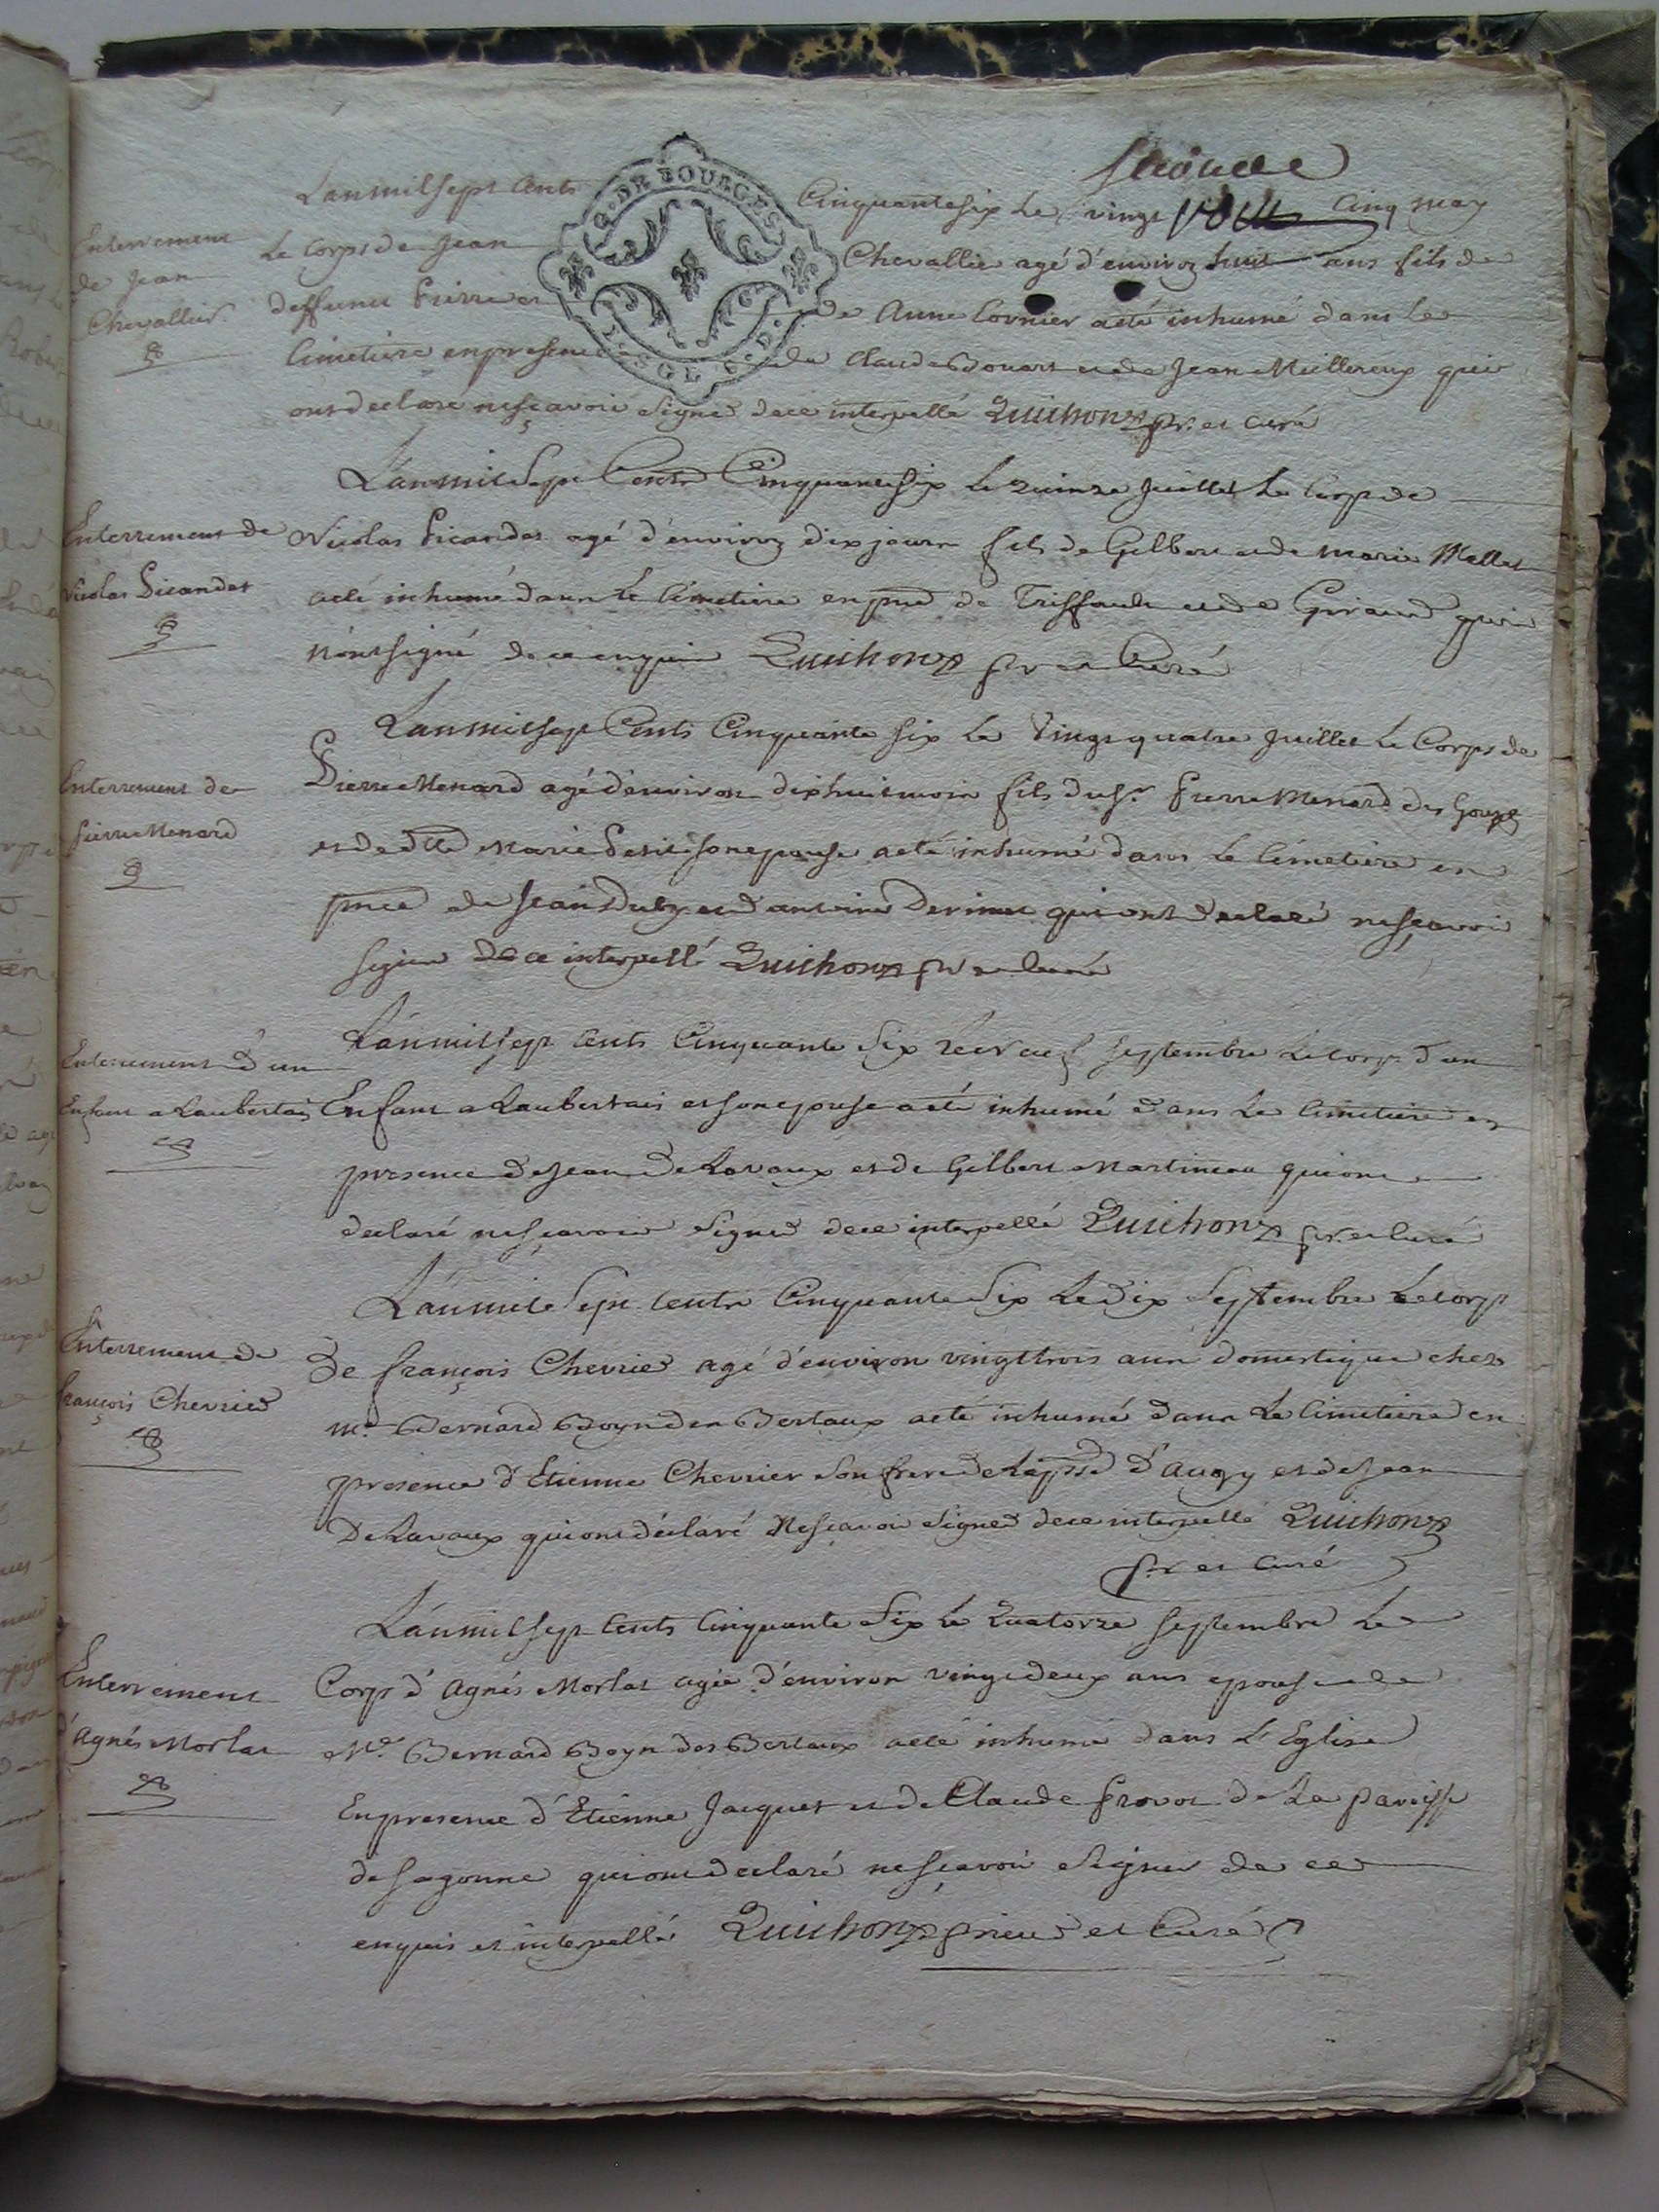 G. DE BOURGES
L'an mil sept Cents Cinquante six Le vingt Cinq may
Enterrement
de Jean
Chevallier
Le Corps de Jean Chevallier agé d'environ huit ans fils de
deffunct Pierre et de Anne Cornier a eté inhumé dans le
Cimetiere en presence de Claude Bouart et de Jean Millereux qui
ont declaré ne sçavoir signer de ce interpellé Quichon pr. et curé
L'an mil Sept Cents Cinquante six Le quinze Juillet Le Corps de
Enterrement de
Nicolas Picandet
Nicolas Picandet agé d'environ dix jours fils de Gilbert et de Marie Mallet
a eté inhumé dans Le Cimetiere en pnce de Triffault et de Giraud qui
n'ont signé de ce enquis Quichon pr et Curé
L'an mil sept Cents Cinquante six Le Vingt quatre Juillet Le Corps de
Enterrement de
Pierre Menard
Pierre Menard agé d'environ dix huit mois fils du Sr. Pierre Menard des
et de dlle Marie Petit son epouse a eté inhumé dans Le Cimetiere en
pnce de Jean et d'antoine qui ont declaré ne sçavoir
signer de ce interpellé Quichon pr et Curé
L'an mil sept Cents Cinquante Six Le neuf septembre Le corps d'un
Enterrement d'un
Enfant a Laubertais
Enfant a Laubertais et son epouse a eté inhumé dans Le Cimetiere en
presence de Jean De Lavaux et de Gilbert Martineau qui ont
declaré ne sçavoir Signer de ce interpellé Quichon pr. et Curé
L'an mil Sept Cents Cinquante Six Le Dix Septembre Le corps
Enterrement de
François Chevrier
De françois Chevrier agé d'environ vingt trois ans domestique chez
mr. Bernard Boyn des Bertaux a eté inhumé dans Le Cimetiere en
presence d'Etienne Chevrier Son frere de La psse d'augy et de Jean
De Lavaux qui ont déclaré Ne sçavoir Signer de ce interpellé Quichon
pr et Curé
L'an mil sept Cents Cinquante Six Le Quatorze septembre Le
Enterrement
d'Agnés Morlat
Corps d'Agnés Morlat agée d'environ vingt deux ans epouse de
Mr. Bernard Boyn des Bertaux a eté inhumé dans L'Eglise
En presence d'Etienne Jacquet et de Claude Provot de La paroisse
de Sagonne qui ont declaré ne sçavoir Signer de ce
enquis et interpellé Quichon prieur et Curé